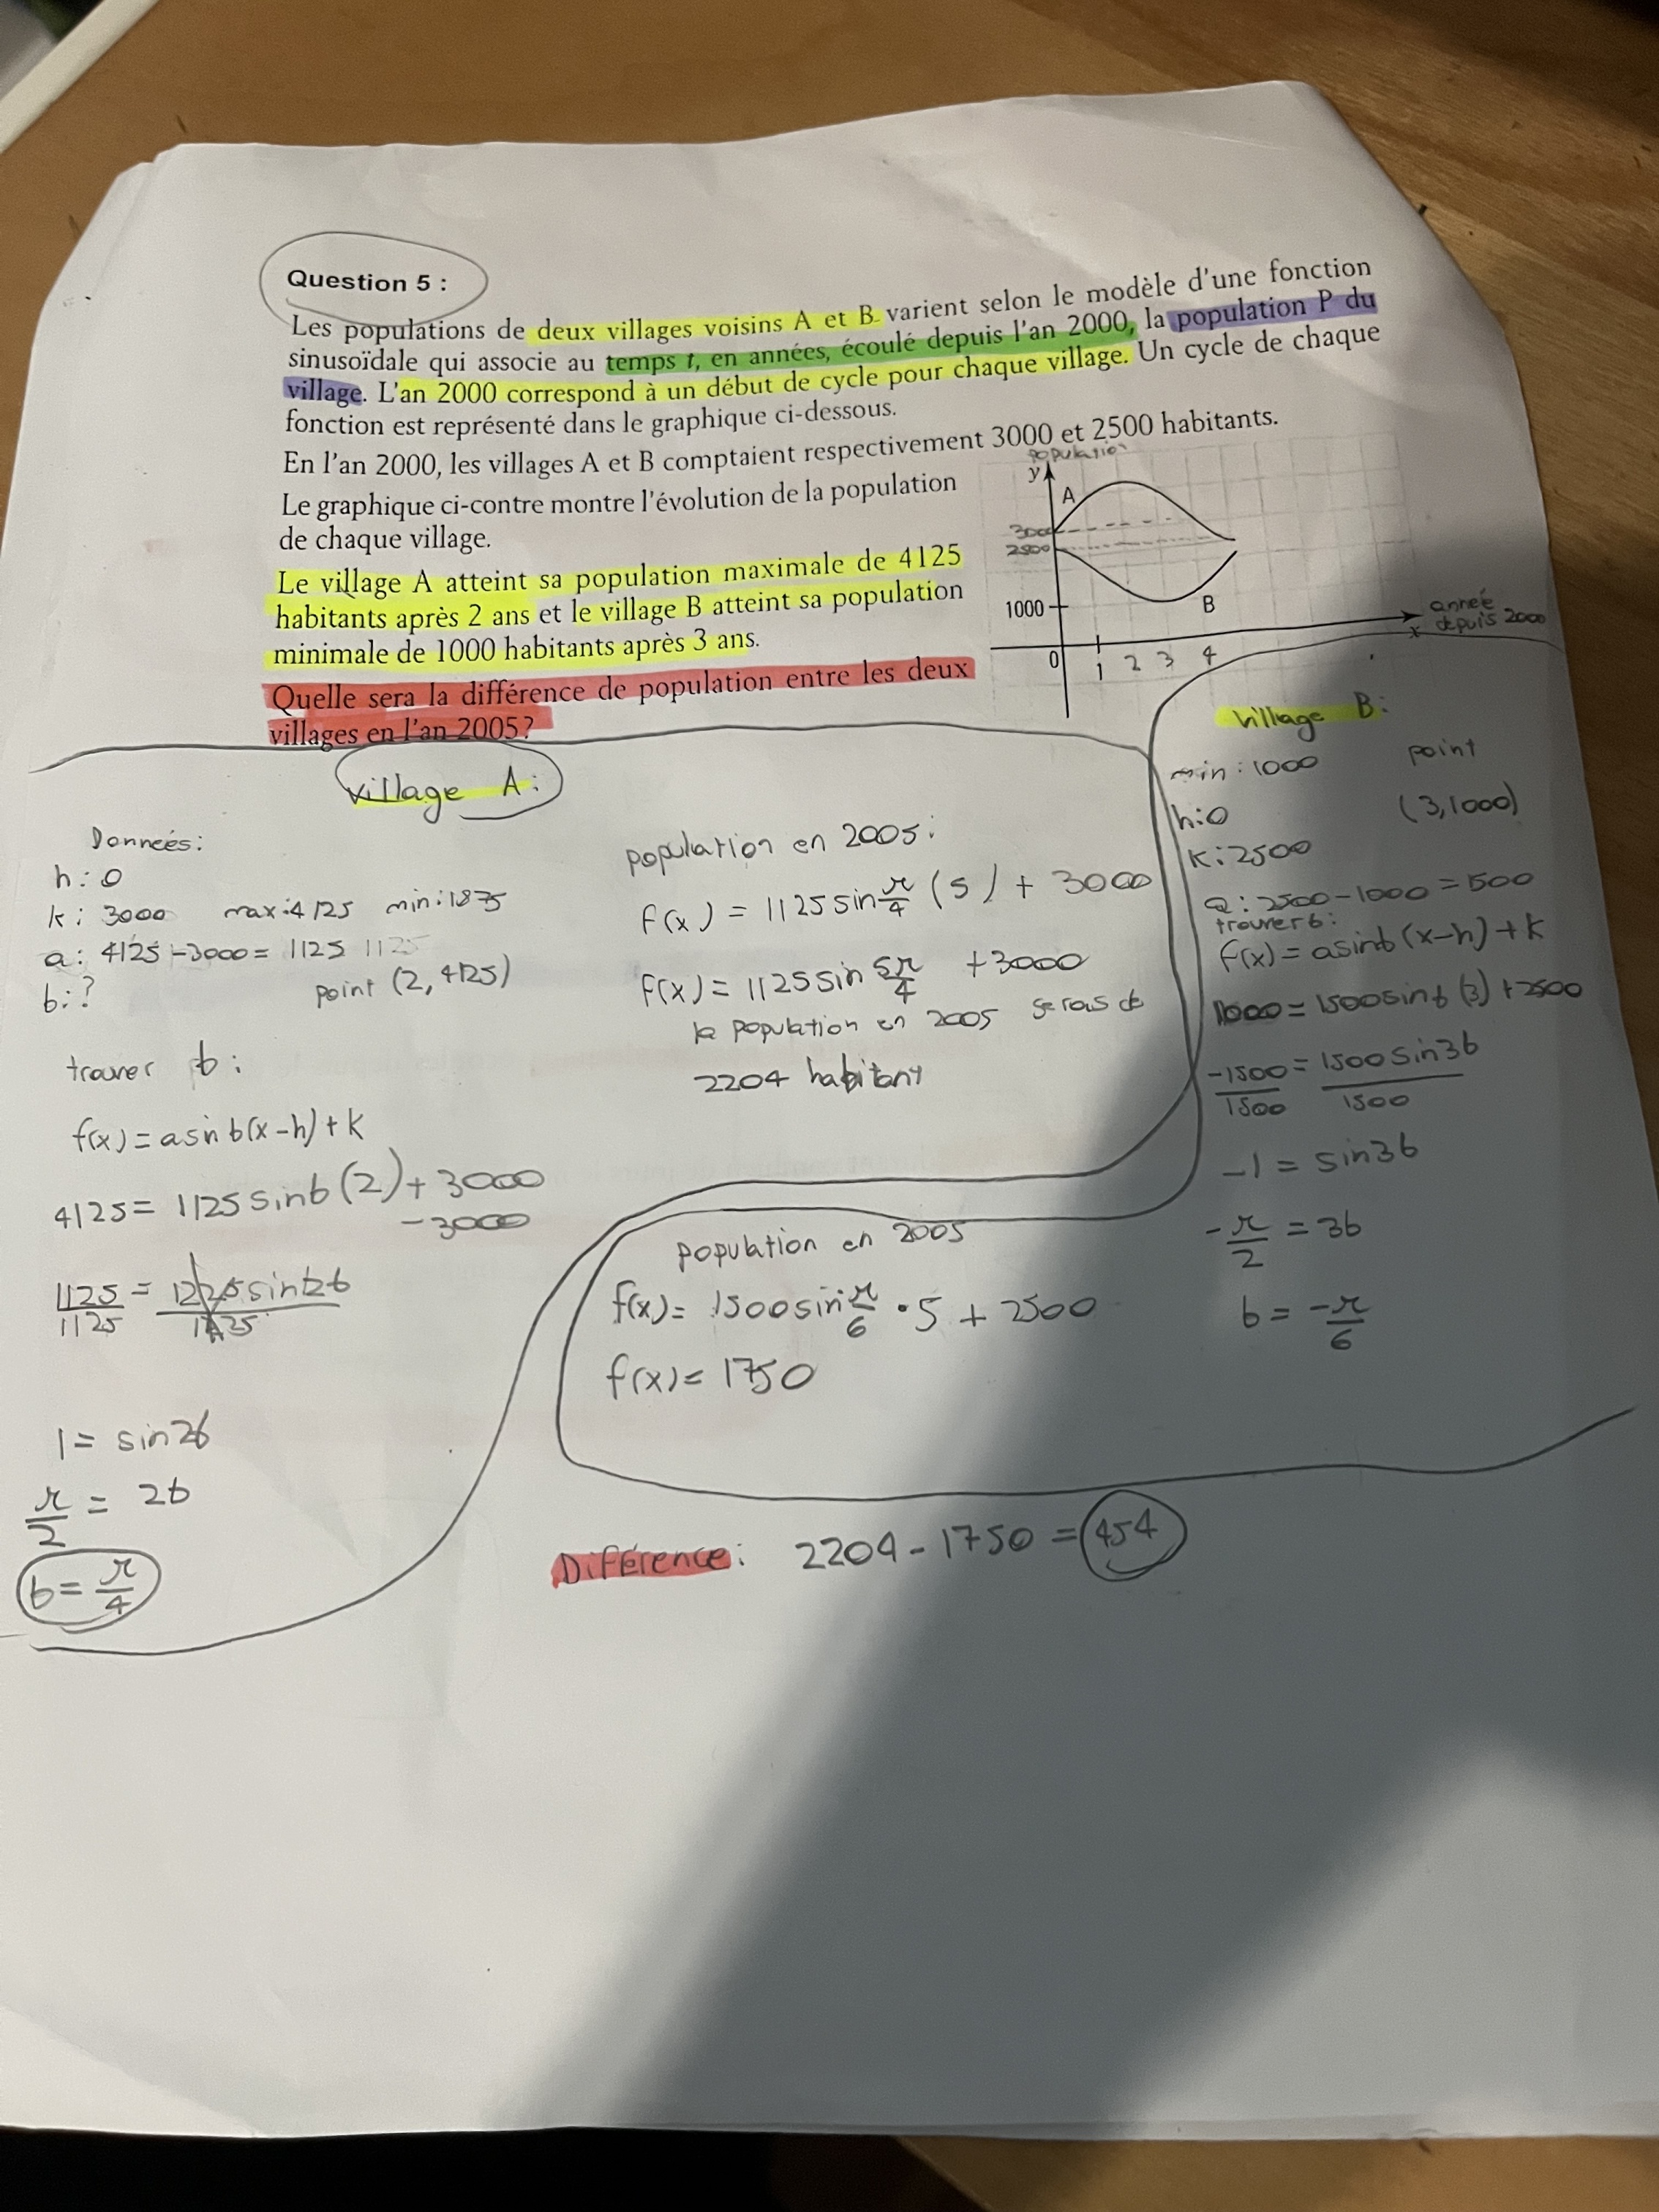 Question 5 :
Les populations de deux villages voisins A et B varient selon le modèle d'une fonction
sinusoïdale qui associe au temps t, en années, écoulé depuis l'an 2000, la population P du
village. L'an 2000 correspond à un début de cycle pour chaque village. Un cycle de chaque
fonction est représenté dans le graphique ci-dessous.
En l'an 2000, les villages A et B comptaient respectivement 3000 et 2500 habitants.
Le graphique ci-contre montre l'évolution de la population
de chaque village.
Le village A atteint sa population maximale de 4125
habitants après 2 ans et le village B atteint sa population
minimale de 1000 habitants après 3 ans.
Quelle sera la différence de population entre les deux
villages en l'an 2005?
population
y
A
3000
2500
1000
B
année
depuis 2000
x
0
1 2 3 4
village A:
Données:
h: 0
k: 3000 max:4125 min:1875
a: 4125-3000= 1125 1125
b:? point (2, 4125)
trouver b:
f(x)=asinb(x-h)+k
4125= 1125sinb(2)+3000
-3000
1125/1125 = 1225sin2b/1125
1= sin2b
π/2 = 2b
b= π/4
population en 2005:
f(x)= 1125sin π/4 (5)+ 3000
f(x)= 1125sin 5π/4 +3000
la population en 2005 serais de
2204 habitant
village B:
min:1000 point
h:0 (3,1000)
k:2500
a:2500-1000=1500
trouver b:
f(x)=asinb(x-h)+k
1000=1500sinb(3)+2500
-1500/1500 = 1500sin3b/1500
-1= sin3b
-π/2 = 3b
b= -π/6
population en 2005
f(x)= 1500sin π/6 •5 + 2500
f(x)= 1750
Différence: 2204-1750=454